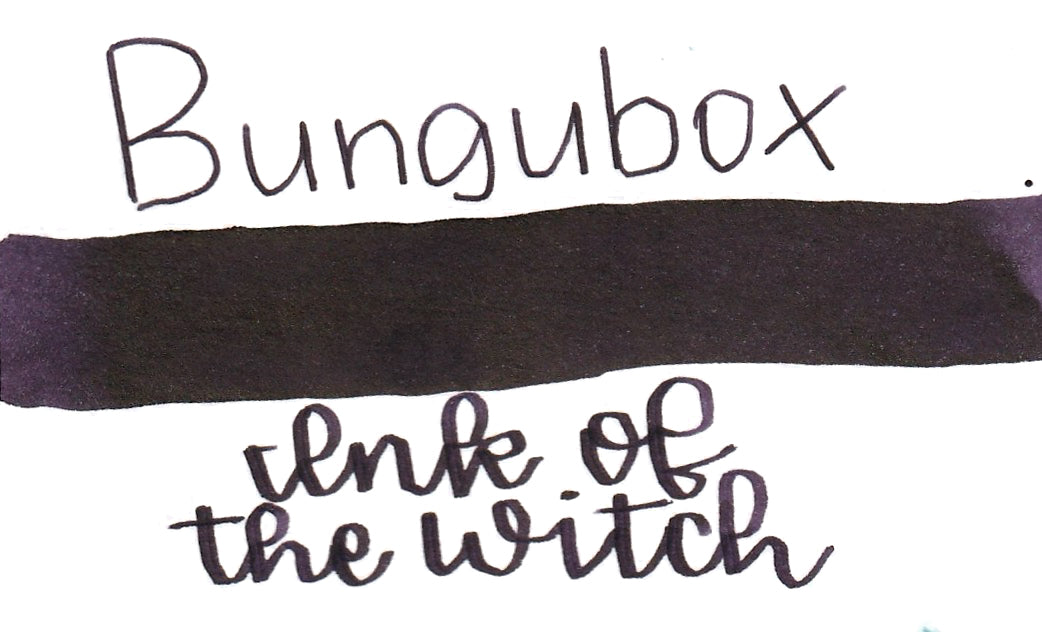 Bungubox
Ink of
the witch